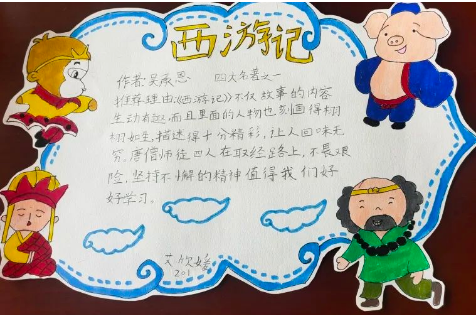 西游记
作者:吴承恩 四大名著之一
推荐理由:《西游记》不仅故事的内容
生动有趣,而且里面的人物也刻画得栩
栩如生,描述得十分精彩,让人回味无
穷。唐僧师徒四人在取经路上,不畏艰
险、坚持不懈的精神值得我们好
好学习。
艾欣
201